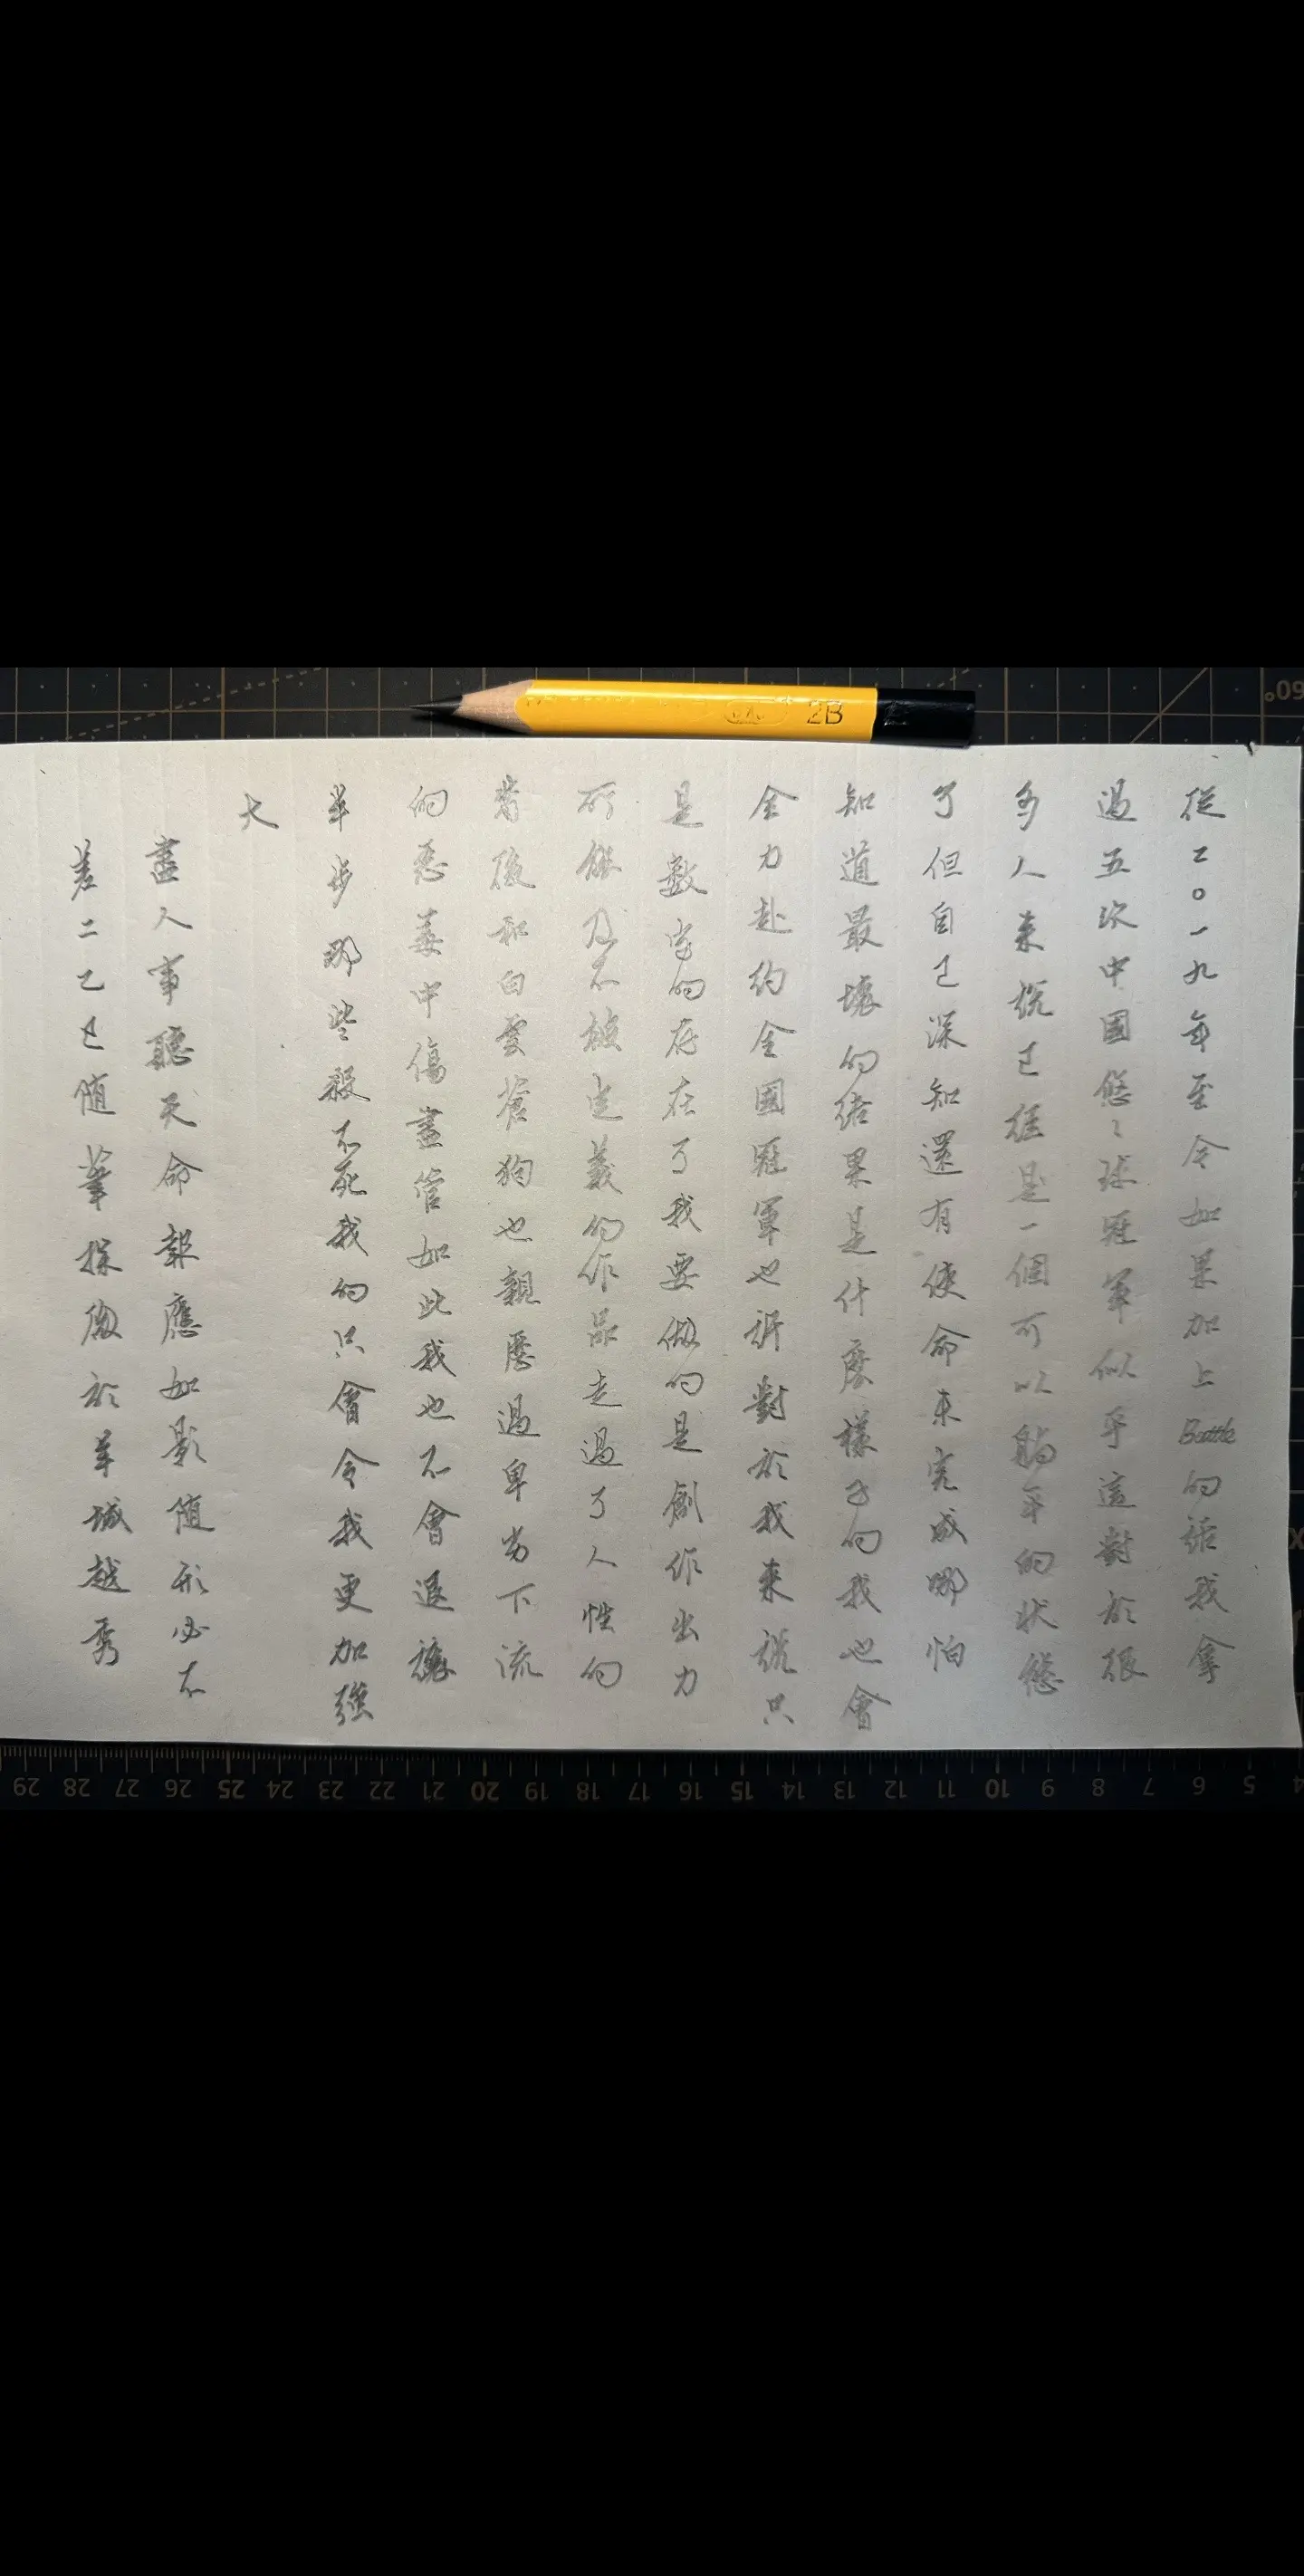 從二〇一九年至今如果加上Battle的話我拿
過五次中國悠〻球冠軍似乎這對於很
多人來說已經是一個可以躺平的狀態
了但自己深知還有使命未完成哪怕
知道最壞的結果是什麼樣子的我也會
全力赴約全國冠軍也許對於我來說只
是數字的存在了我要做的是創作出力
所能及不被定義的作品走過了人性的
背後和白雲蒼狗也親歷過卑劣下流
的惡毒中傷盡管如此我也不會退讓
半步那些殺不死我的只會令我更加強
大
盡人事聽天命報應如影随形必不
差二乙巳随筆探微於羊城越秀
2B
60°
29 28 27 26 25 24 23 22 21 20 19 18 17 16 15 14 13 12 11 10 9 8 7 6 5 4